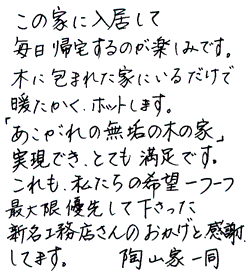 この家に入居して
毎日帰宅するのが楽しみです。
木に包まれた家にいるだけで
暖たかく、ホットします。
「あこがれの無垢の木の家」
実現でき、とても満足です。
これも、私たちの希望一つ一つ
最大限優先して下さった
新名工務店さんのおかげと、感謝
してます。 陶山家一同